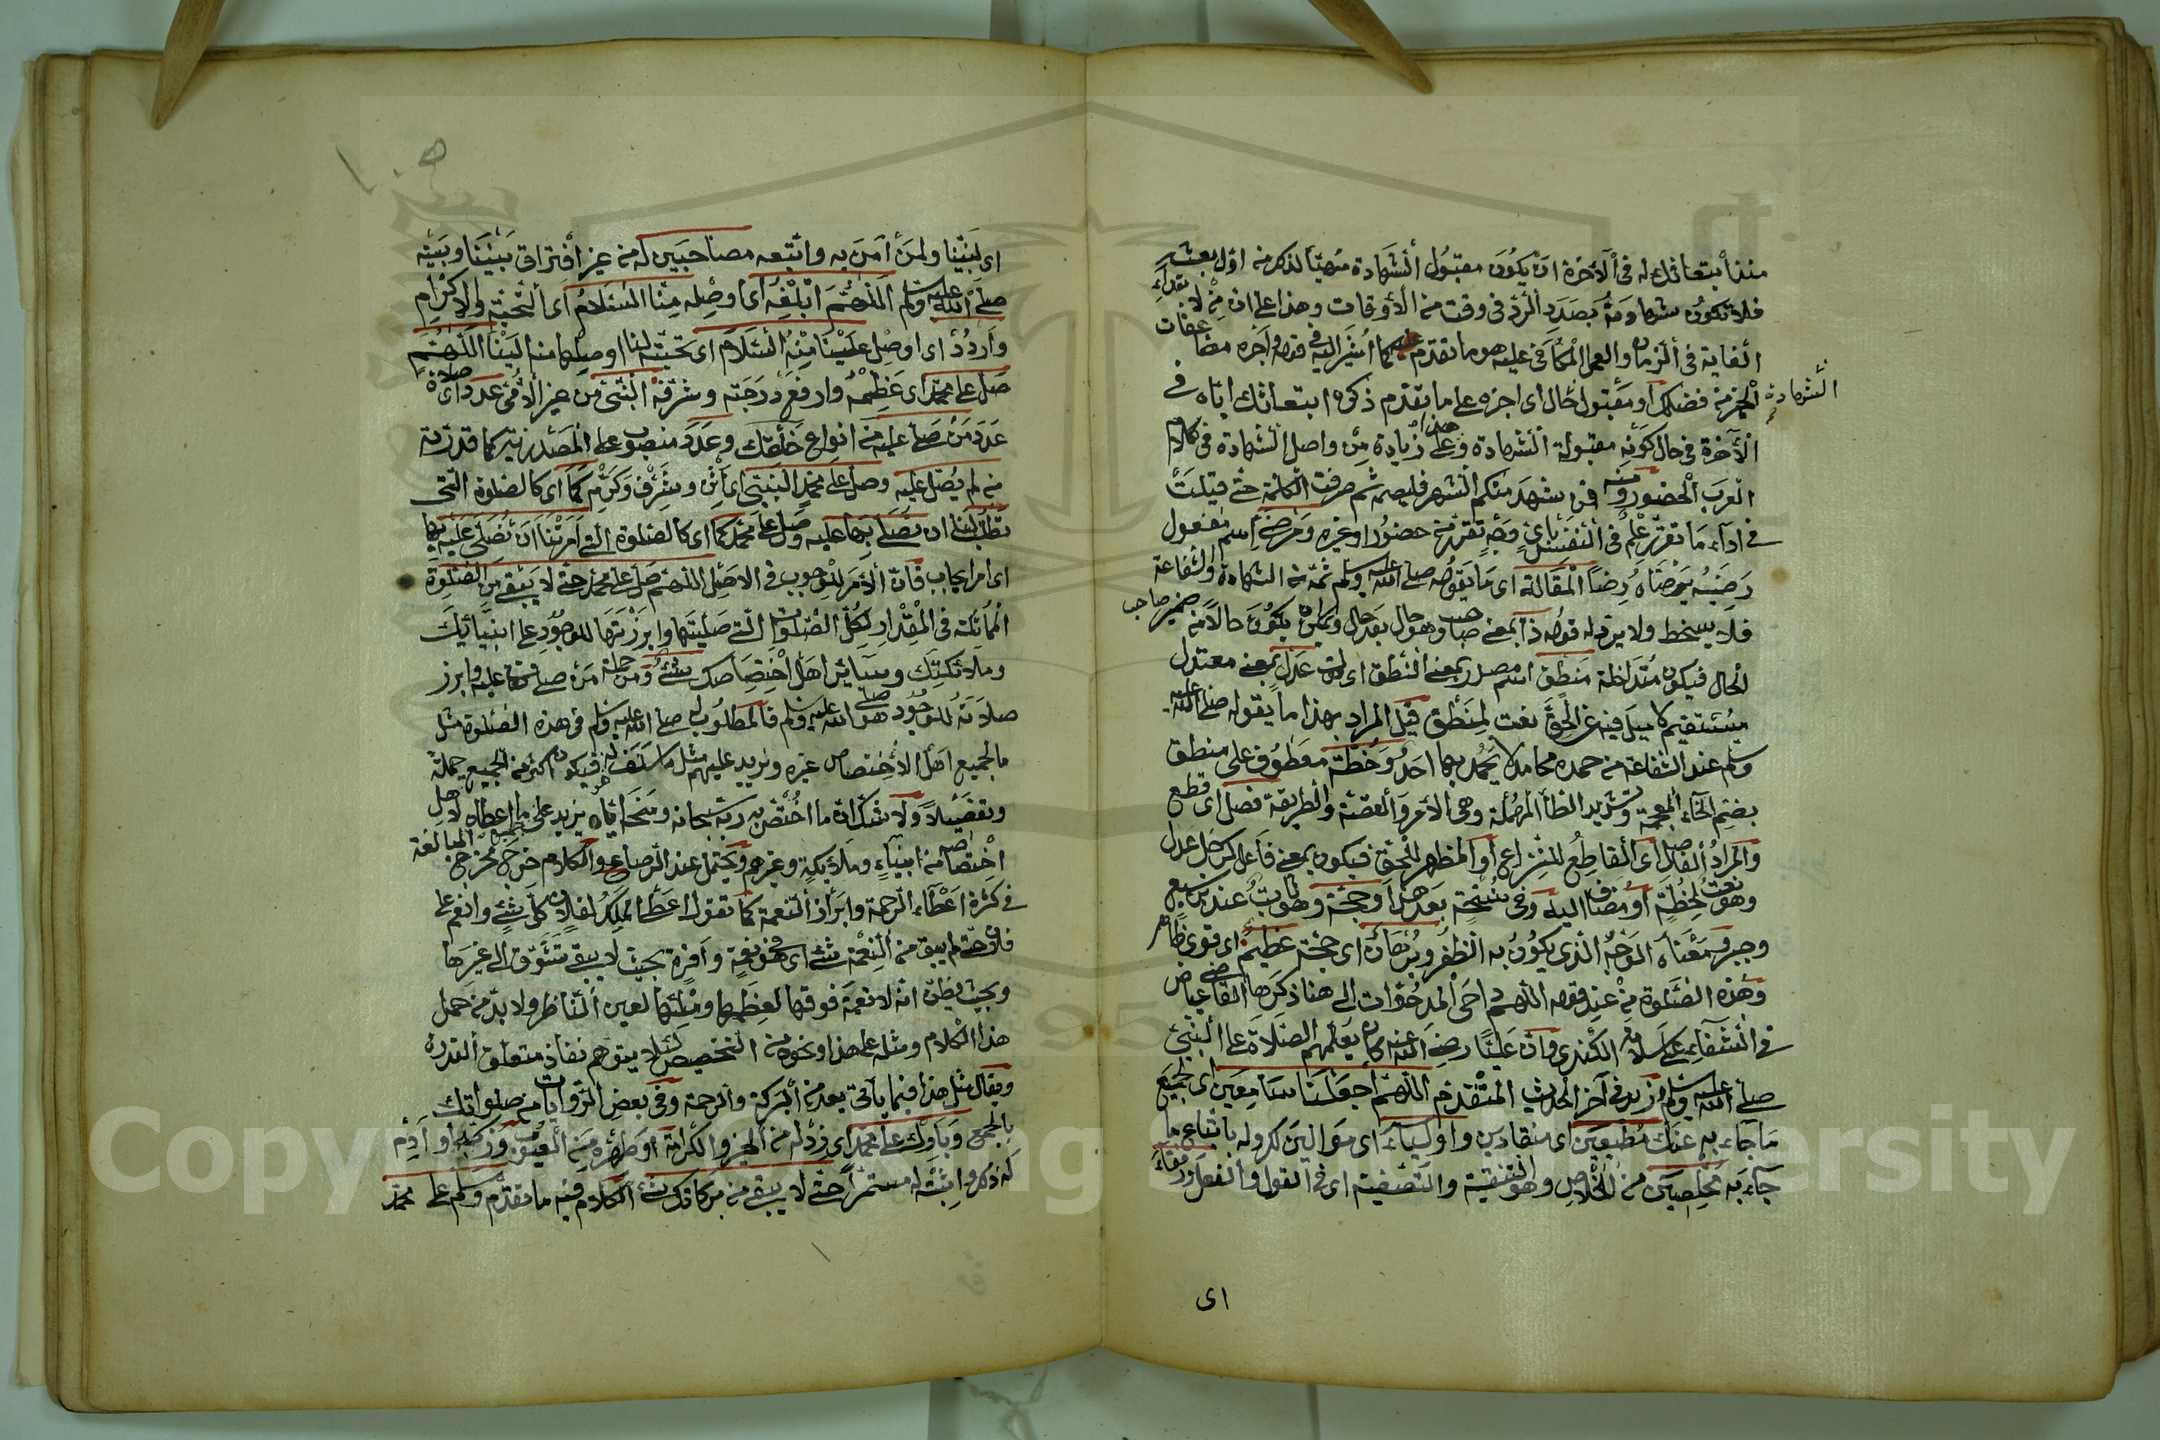 منذ ابتعاثك له في الآخرة ان يكون مقبول الشهادة متهيأ لذلك من اول بعثه
فلا تكون شهادمة بصدد الرد في وقت من الأوقات وهذا على ان من لابتداء
الغاية في الزمان والعمل المكافى عليه هو ما تقدم كما اشير اليه في فيه وآخره مضاعفات
الخير من فضلك او مقبول حال اى اجزه على ما تقدم ذكره ابتعاثك اياه في
الشهادة
الآخرة في حال كونه مقبولة الشهادة وعلى هذا زيادة من واصل الشهادة في كلام
العرب الحضور ومنه فمن شهد منكم الشهر فليصمه ثم صرفت الكلمة حتى قيلت
في اداء ما تقرر علمه في النفس باي وجه تقرر من حضور او غيره ومرضى اسم مفعول
رضيه يرضاه رضا المقالة اى ما يقوله صلى الله عليه وسلم ثمة من الشهادة والشفاعة
فلا يسخط ولا يرد له قوله ذا بمعنى صاحب وهو حال بعد حال ويمكن يكون حالا من ضمير صاحب
الحال فيكون متداخلة منطق اسم مصدر بمعنى النطق اى عدل بمعنى معتدل
مستقيم لا ميل فيه عن الحق نعت لمنطق قيل المراد بهذا ما يقوله صلى الله عليه
وسلم عند الشفاعة من حمده محامد لا يحمد بها احد وخطة معطوف على منطق
بضم الخاء المعجمة وتشديد الطاء المهملة وهى الأمر والقصة والطريقة فصل اى قطع
والمراد الفاصل اى القاطع للنزاع او المظهر للحق فيكون بمعنى فاعل كرجل عدل
وهو نعت لخطة او مضاف اليه وفي نسخة بعد هذا وحجة وهو ثابت عند بن سبع
وجبر معناه الوجه الذي يكون به الظفر وبرهان اى حجة عظيم اى قوى ظاهر
وهذه الصلوة من عند قوله اللهم داحى المدحوات الى هنا ذكرها القاضى عياض
في الشفاء عن سلامة الكندى وان عليا رضى الله عنه كان يعلمهم الصلاة على النبي
صلى الله عليه وسلم زيد في آخر الحديث المتقدم اللهم اجعلنا سامعين اى لجميع
ما جاء به عنك مطيعين اى منقادين واولياء اى موالين له وله باتباع ما
جاء به مخلصين من الخلاص وهو التنقية والتصفية اى في القول والفعل ورفقاء
اى
اى لنبينا ولمن آمن به واتبعه مصاحبين له من غير افتراق بيننا وبينه
صلى الله عليه وسلم اللهم ابلغه اى اوصله منا السلام اى التحية والاكرام
واردد اى اوصل علينا منه السلام اى تحيته لنا او صلها منه الينا اللهم
صل على محمد اى عظمه وارفع درجته وشرفه النبي من غير الأمى عدد اى صلاة
عدد من صلى عليه من انواع خلقك وعدد منصوب على المصدرية كما قدرته
من لم يصل عليه وصل على محمد النبي اى اثن وشرف وكرم كما اى كالصلوة التي
تطلبنا ان نصلى بها عليه وصل على محمد كما اى كالصلوة التي امرتنا ان نصلى عليه بها
اى امر ايجاب فان الأمر للوجوب في الاصل اللهم صل على محمد حتى لا يبقى من الصلوة
المماثلة في المقدار لكل الصلوات التي صليتها وابرزتها للوجود على انبيائك
وملائكتك وسائر اهل اختصاصك شئ ومن جملة من صلى عليه وابرز
صلاته للوجود هو صلى الله عليه وسلم فالمطلوب له صلى الله عليه وسلم في هذه الصلوة مثل
ما لجميع اهل الأختصاص غيره ونزيد عليهم مثل ما سلف له فيكون اكثر من الجميع جملة
وتفضيلا ولا شك ان ما اختص به ربه سبحانه ومنحه اياه يزيد على ما اعطاه لاهل
اختصاصه من انبياء وملائكة وغيرهم ويحتمل عند الرصاع والكلام خرج مخرج المبالغة
في كثرة اعطاء الرحمة وابراز النعمة كما تقول اعطا الملك لفلان كل شئ وانعم على
فلان حتى لم يبق من النعمة شئ اى فهو في نعمة وافرة بحيث لا يبقى تشوق الى غيرها
وبحيث يظن انه لا نعمة فوقها لعظمها وملئها لعين الناظر ولا بد من حمل
هذا الكلام ومثله على هذا ونحوه من التخصيص لئلا يتوهم نفاذ متعلق القدرة
ويقال مثل هذا فيما يأتى بعد من البركة والرحمة وفي بعض الروايات من صلواتك
بالجمع وبارك على محمد اى زد له من الخير والكرامة او طهره من العيوب وزكه او ادم
له ذكره واثبته له مستمرا حتى لا يبقى من بركاتك شئ الكلام فيه ما تقدم وسلم على محمد